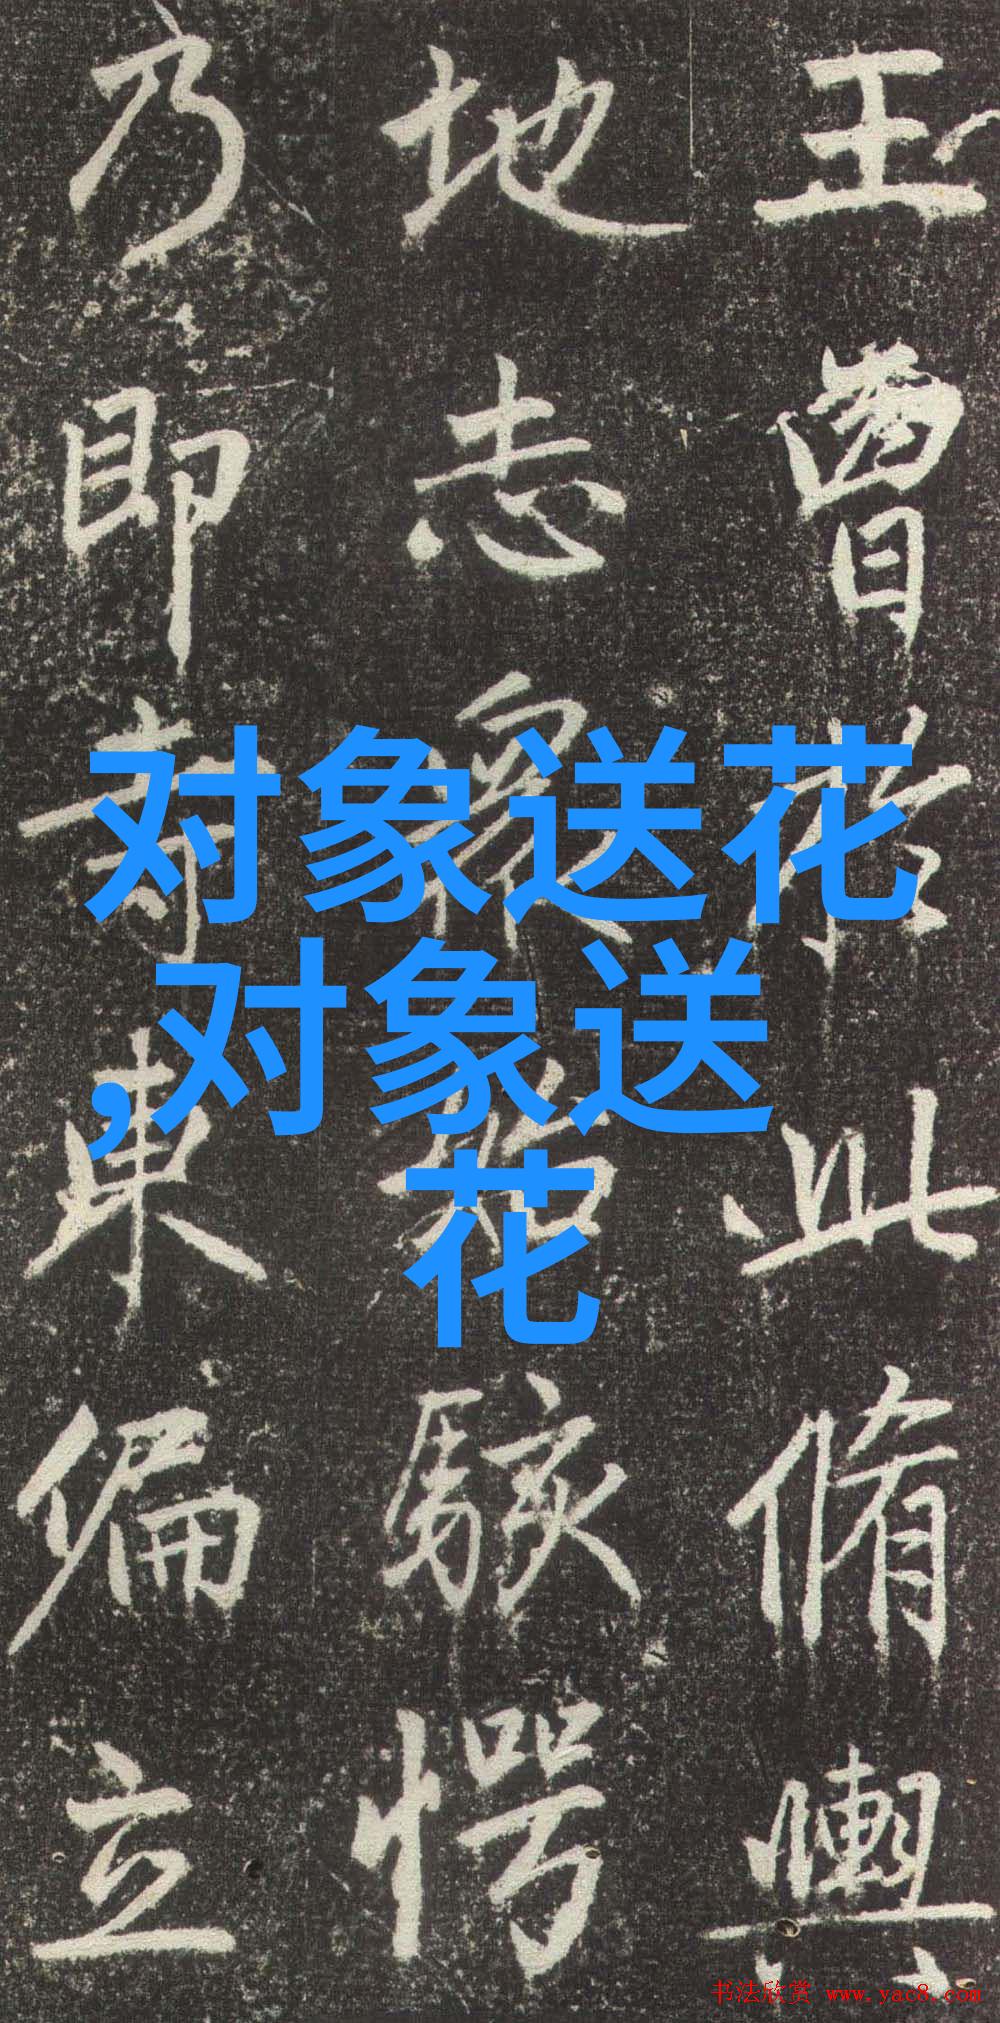 王曾於此脩輿
地志衆始駭愕
乃即寺東偏立
对象送花
,对象送
花
书法欣赏 www.yac8.com